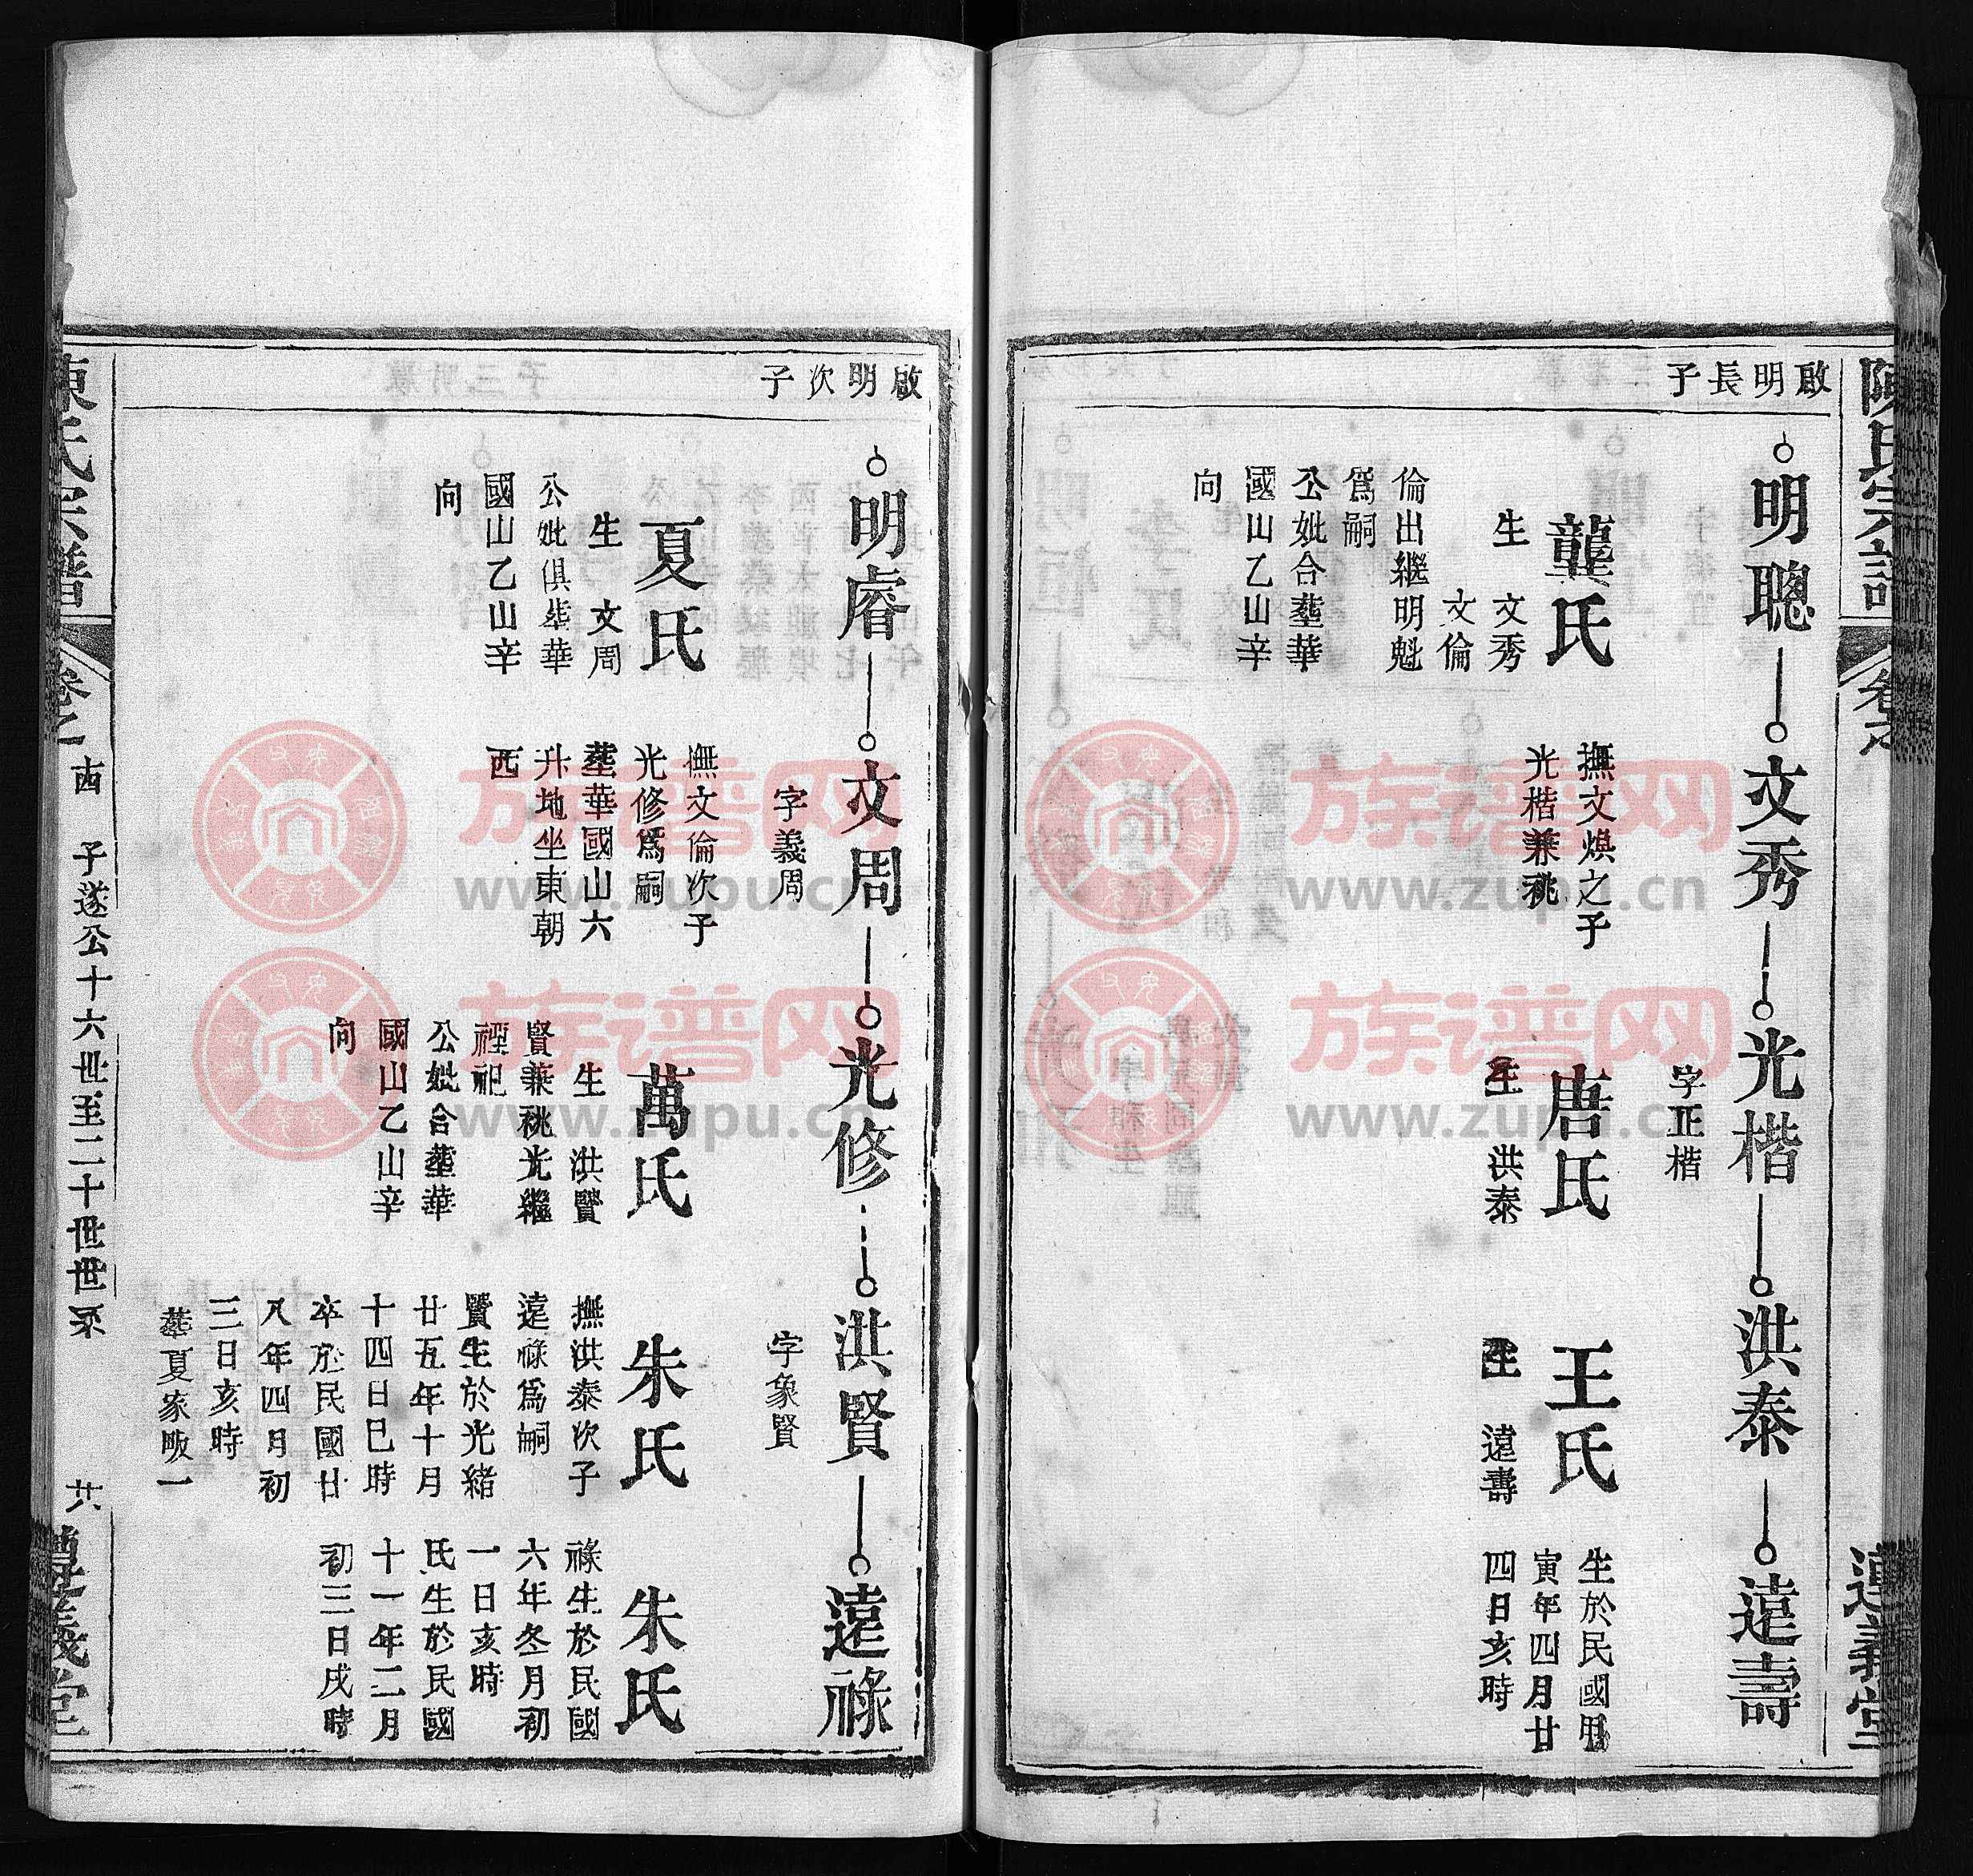 陳氏宗譜
遵義堂
啟明長子
明聰
龔氏
生 文秀
文倫
倫出繼明魁
爲嗣
公妣合塟華
國山乙山辛
向
文秀
撫文煥之子
光楷兼祧
光楷
字正楷
唐氏
生 洪泰
洪泰
王氏
生 遠壽
遠壽
生於民國甲
寅年四月廿
四日亥時
啟明次子
明睿
夏氏
生 文周
公妣俱塟華
國山乙山辛
向
文周
字義周
撫文倫次子
光修爲嗣
塟華國山六
升地坐東朝
西
光修
萬氏
生 洪賢
賢兼祧光繼
禋祀
公妣合塟華
國山乙山辛
向
洪賢
字象賢
朱氏
撫洪泰次子
遠祿爲嗣
賢生於光緒
廿五年十月
十四日巳時
卒於民國廿
八年四月初
三日亥時
塟夏家畈一
遠祿
朱氏
祿生於民國
六年冬月初
一日亥時
氏生於民國
十一年二月
初三日戌時
陳氏宗譜
卷之
子遂公十六世至二十世世系
遵義堂
族谱网
www.zupu.cn
族谱网
www.zupu.cn
族谱网
www.zupu.cn
族谱网
www.zupu.cn